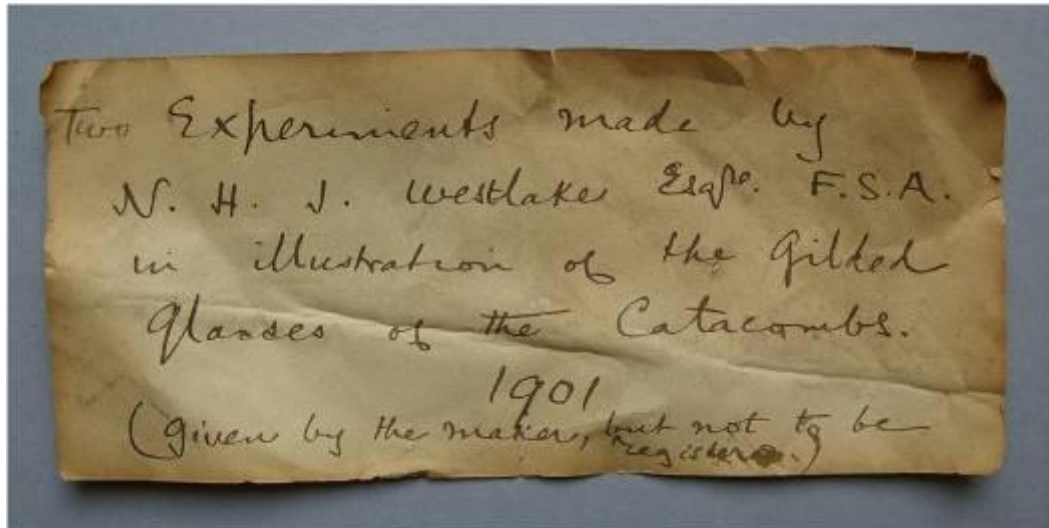 Two Experiments made by
N. H. J. Westlake Esqre. F.S.A.
in illustration of the Gilded
Glasses of the Catacombs.
1901
(Given by the maker, but not to be
registered.)